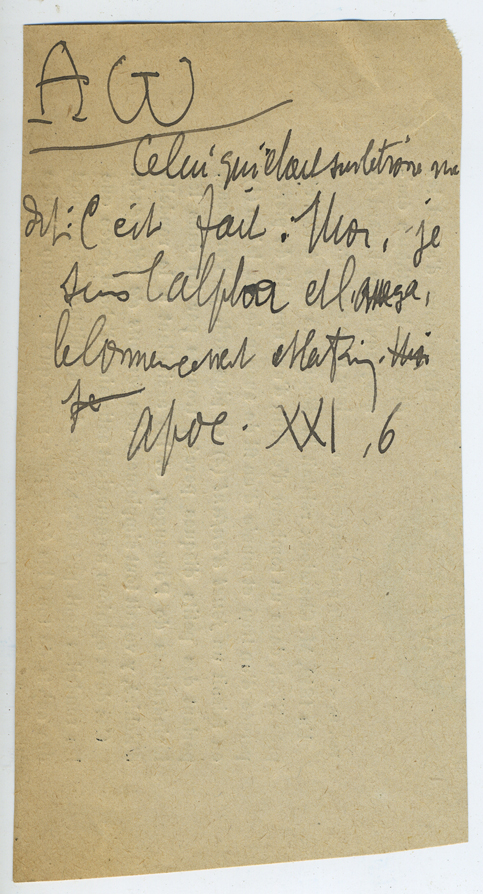 A ω
Celui qui était sur le trône me
dit : C'est fait. Moi, je
suis l'alpha et l'omega,
le commencement et la fin.
Apoc. XXI, 6